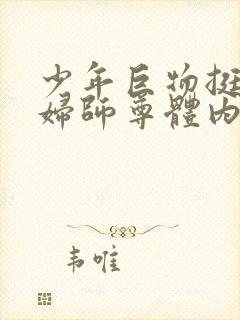 少年巨物挺
婦師尊體內
韦唯